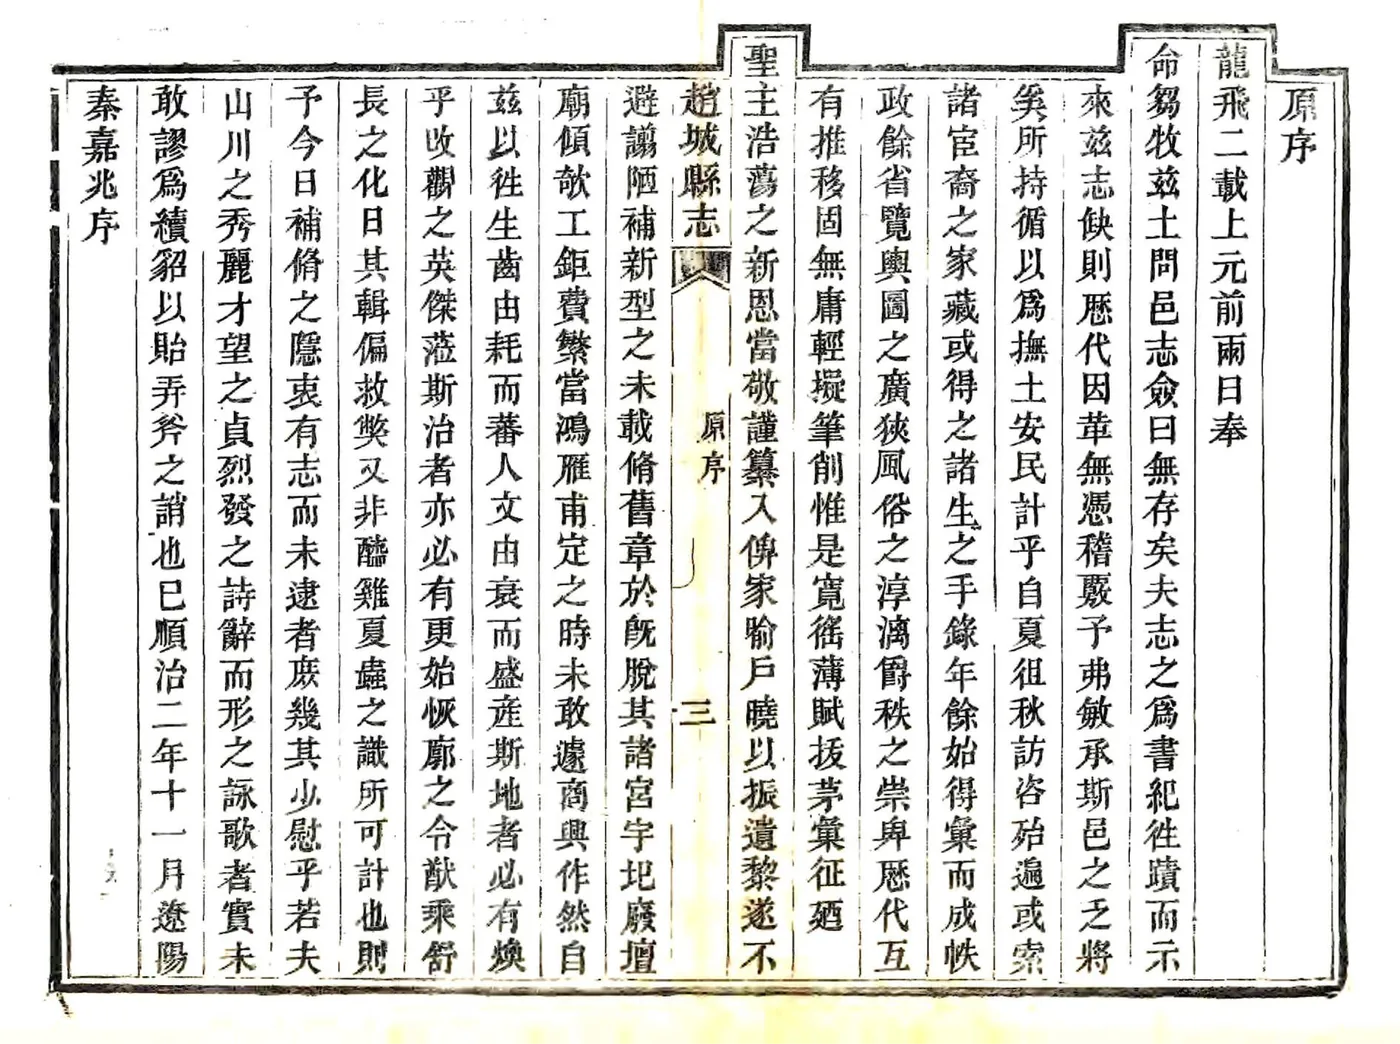 原序
龍飛二載上元前兩日奉
命芻牧茲土問邑志僉曰無存矣夫志之爲書紀徃蹟而示
來茲志缺則歷代因革無憑稽覈予弗敏承斯邑之乏將
奚所持循以爲撫土安民計乎自夏徂秋訪咨殆遍或索
諸宦裔之家藏或得之諸生之手錄年餘始得彙而成帙
政餘省覽輿圖之廣狹風俗之淳漓爵秩之崇卑歷代互
有推移固無庸輕擬筆削惟是寬徭薄賦拔茅彙征廼
聖主浩蕩之新恩當敬謹纂入俾家喻戶曉以振遺黎遂不
趙城縣志
原序
三
避譾陋補新型之未載脩舊章於旣脫其諸宮宇圮廢壇
廟傾欹工鉅費繁當鴻雁甫定之時未敢遽商興作然自
茲以徃生齒由耗而蕃人文由衰而盛產斯地者必有煥
乎改觀之英傑蒞斯治者亦必有更始恢廓之令猷乘舒
長之化日其輯偏救獘又非醯雞夏蟲之識所可計也則
予今日補脩之隱衷有志而未逮者庶幾其少慰乎若夫
山川之秀麗才望之貞烈發之詩辭而形之詠歌者實未
敢謬爲續貂以貽弄斧之誚也已順治二年十一月遼陽
秦嘉兆序